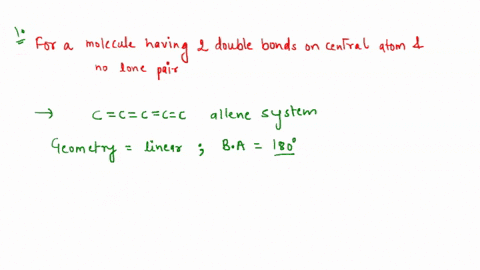 1.
For a molecule having 2 double bonds on central atom &
no lone pair
→ C=C=C=C=C allene system
Geometry = linear ; B.A = 180°